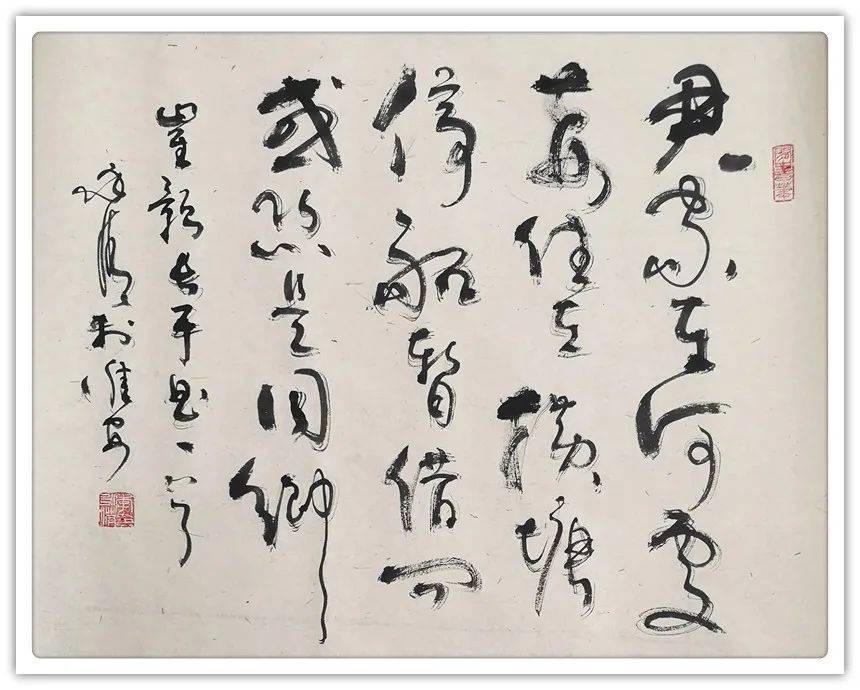 君家在何處
妾住在橫塘
停船暫借問
或恐是同鄉
崔顥長干曲一首
於淮安